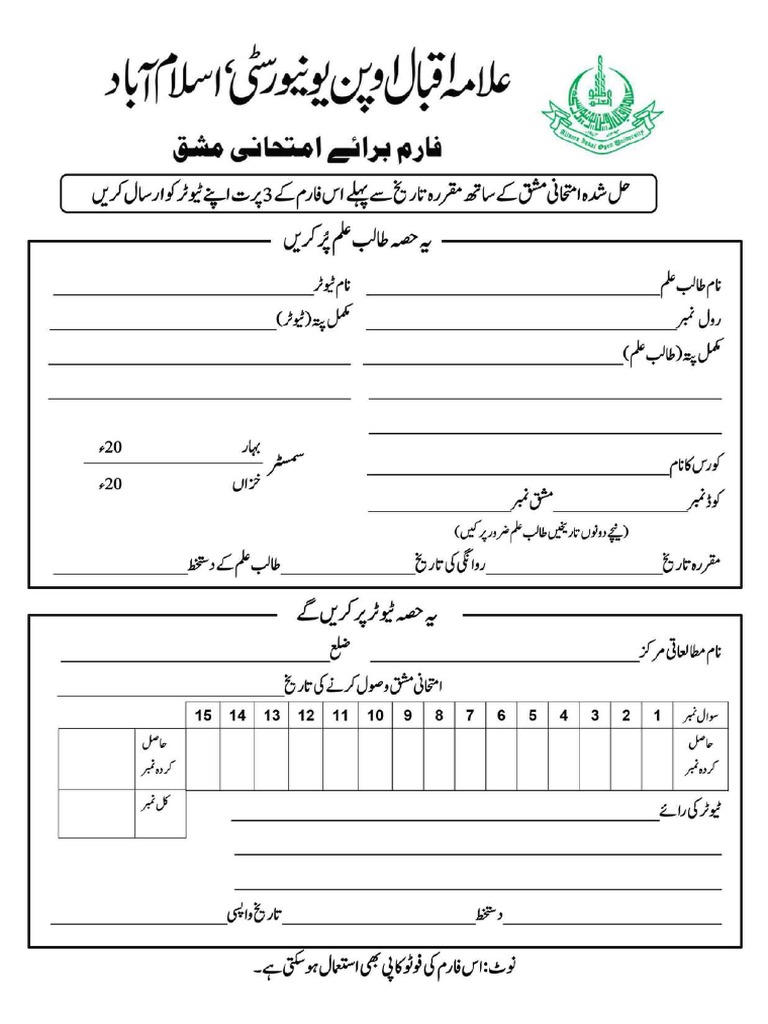 علامہ اقبال اوپن یونیورسٹی، اسلام آباد
Allama Iqbal Open University
فارم برائے امتحانی مشق
حل شدہ امتحانی مشق کے ساتھ مقررہ تاریخ سے پہلے اس فارم کے 3 پرت اپنے ٹیوٹر کو ارسال کریں
یہ حصہ طالب علم پُر کریں
نام طالب علم ____ نام ٹیوٹر ____
رول نمبر ____ مکمل پتہ (ٹیوٹر) ____
مکمل پتہ (طالب علم) ____
کورس کا نام ____ سمسٹر بہار 20ء
خزاں 20ء
کوڈ نمبر ____ مشق نمبر ____
(نیچے دونوں تاریخیں طالب علم ضرور پر کیں)
مقررہ تاریخ ____ روانگی کی تاریخ ____ طالب علم کے دستخط ____
یہ حصہ ٹیوٹر پر کریں گے
نام مطالعاتی مرکز ____ ضلع ____
امتحانی مشق وصول کرنے کی تاریخ ____
سوال نمبر 1 2 3 4 5 6 7 8 9 10 11 12 13 14 15
حاصل کردہ نمبر حاصل کردہ نمبر
کل نمبر
ٹیوٹر کی رائے ____
دستخط ____ تاریخ واپسی ____
نوٹ: اس فارم کی فوٹو کاپی بھی استعمال ہو سکتی ہے۔